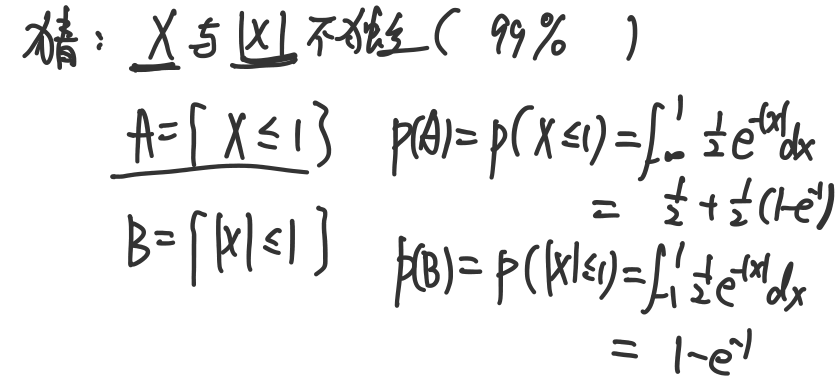 猜: X 与 |X| 不独立 ( 99% )
A = { X ≤ 1 } P(A) = P(X ≤ 1) = ∫_{-∞}^{1} 1/2 e^{-|x|} dx
= 1/2 + 1/2 (1-e^{-1})
B = { |X| ≤ 1 } P(B) = P(|X| ≤ 1) = ∫_{-1}^{1} 1/2 e^{-|x|} dx
= 1-e^{-1}